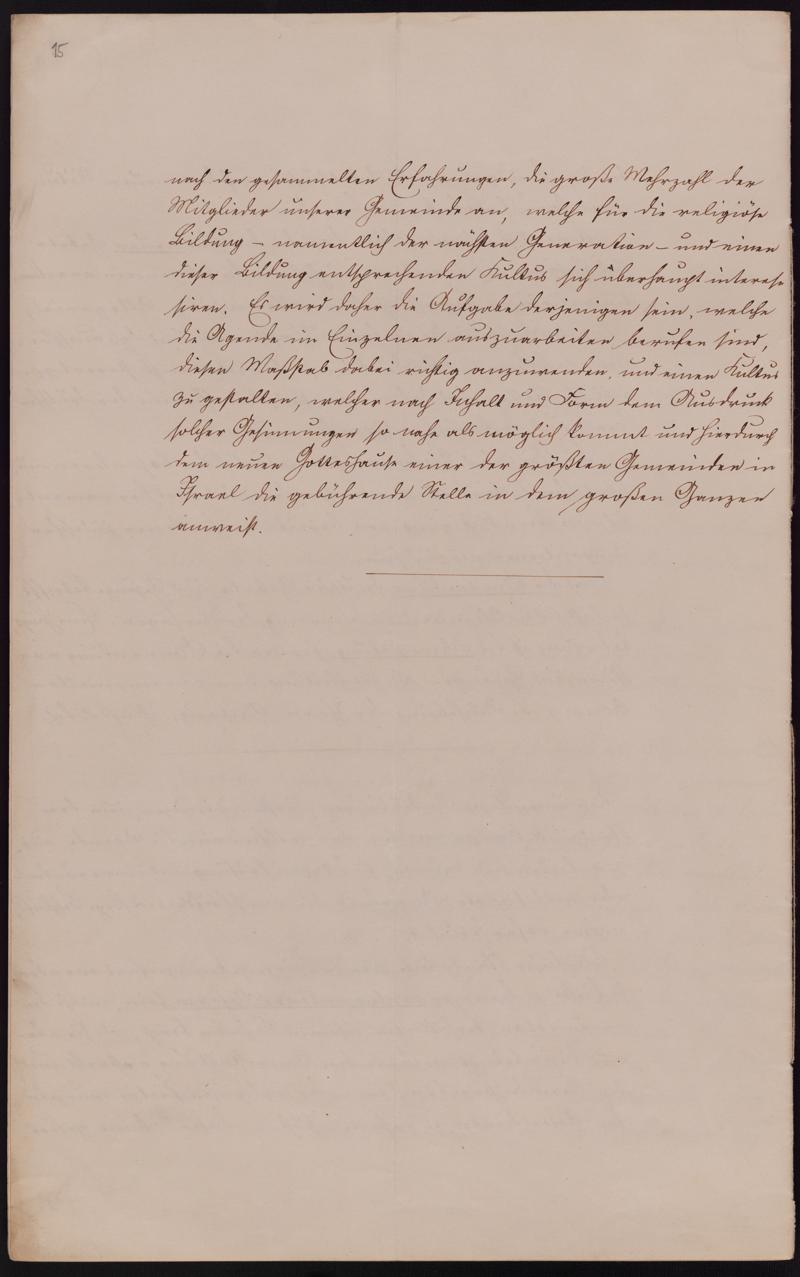 15
nach den gesammelten Erfahrungen, die große Mehrzahl der
Mitglieder unserer Gemeinde an, welche für die religiöse
Bildung – namentlich der nächsten Generation – und einen
dieser Bildung entsprechenden Kultus sich überhaupt interes-
siren. Es wird daher die Aufgabe derjenigen sein, welche
die Agende im Einzelnen auszuarbeiten berufen sind,
diesen Maßstab dabei richtig anzuwenden, und einen Kultus
zu gestalten, welcher nach Inhalt und Form dem Ausdruck
solcher Gesinnungen so nahe als möglich kommt und hierdurch
dem neuen Gotteshause einer der größten Gemeinden in
Israel die gebührende Stelle in dem großen Ganzen
anweist.